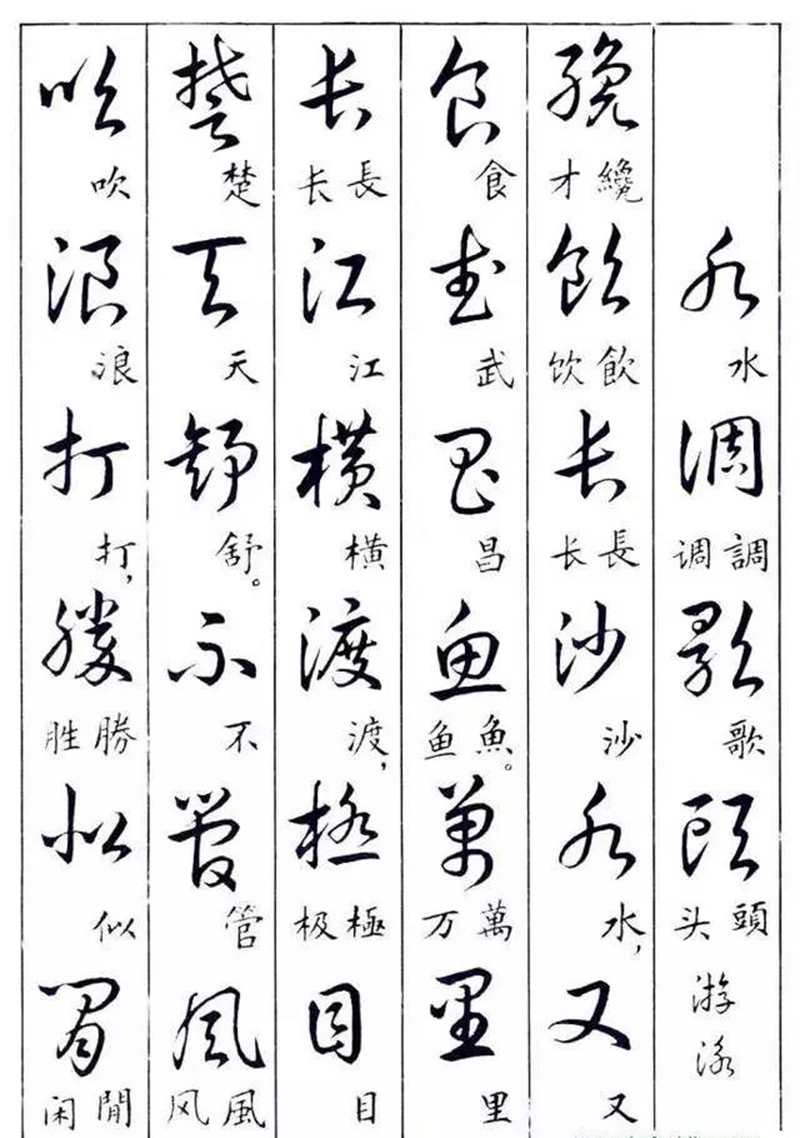 水調歌頭
水 調调 歌 頭头 游泳
纔飲長沙水又
纔才 飲饮 長长 沙 水， 又
食武昌魚萬里
食 武 昌 魚鱼。 萬万 里
長江橫渡極目
長长 江 横 渡， 極极 目
楚天舒不管風
楚 天 舒。 不 管 風风
吹浪打勝似閒
吹 浪 打， 勝胜 似 閒闲